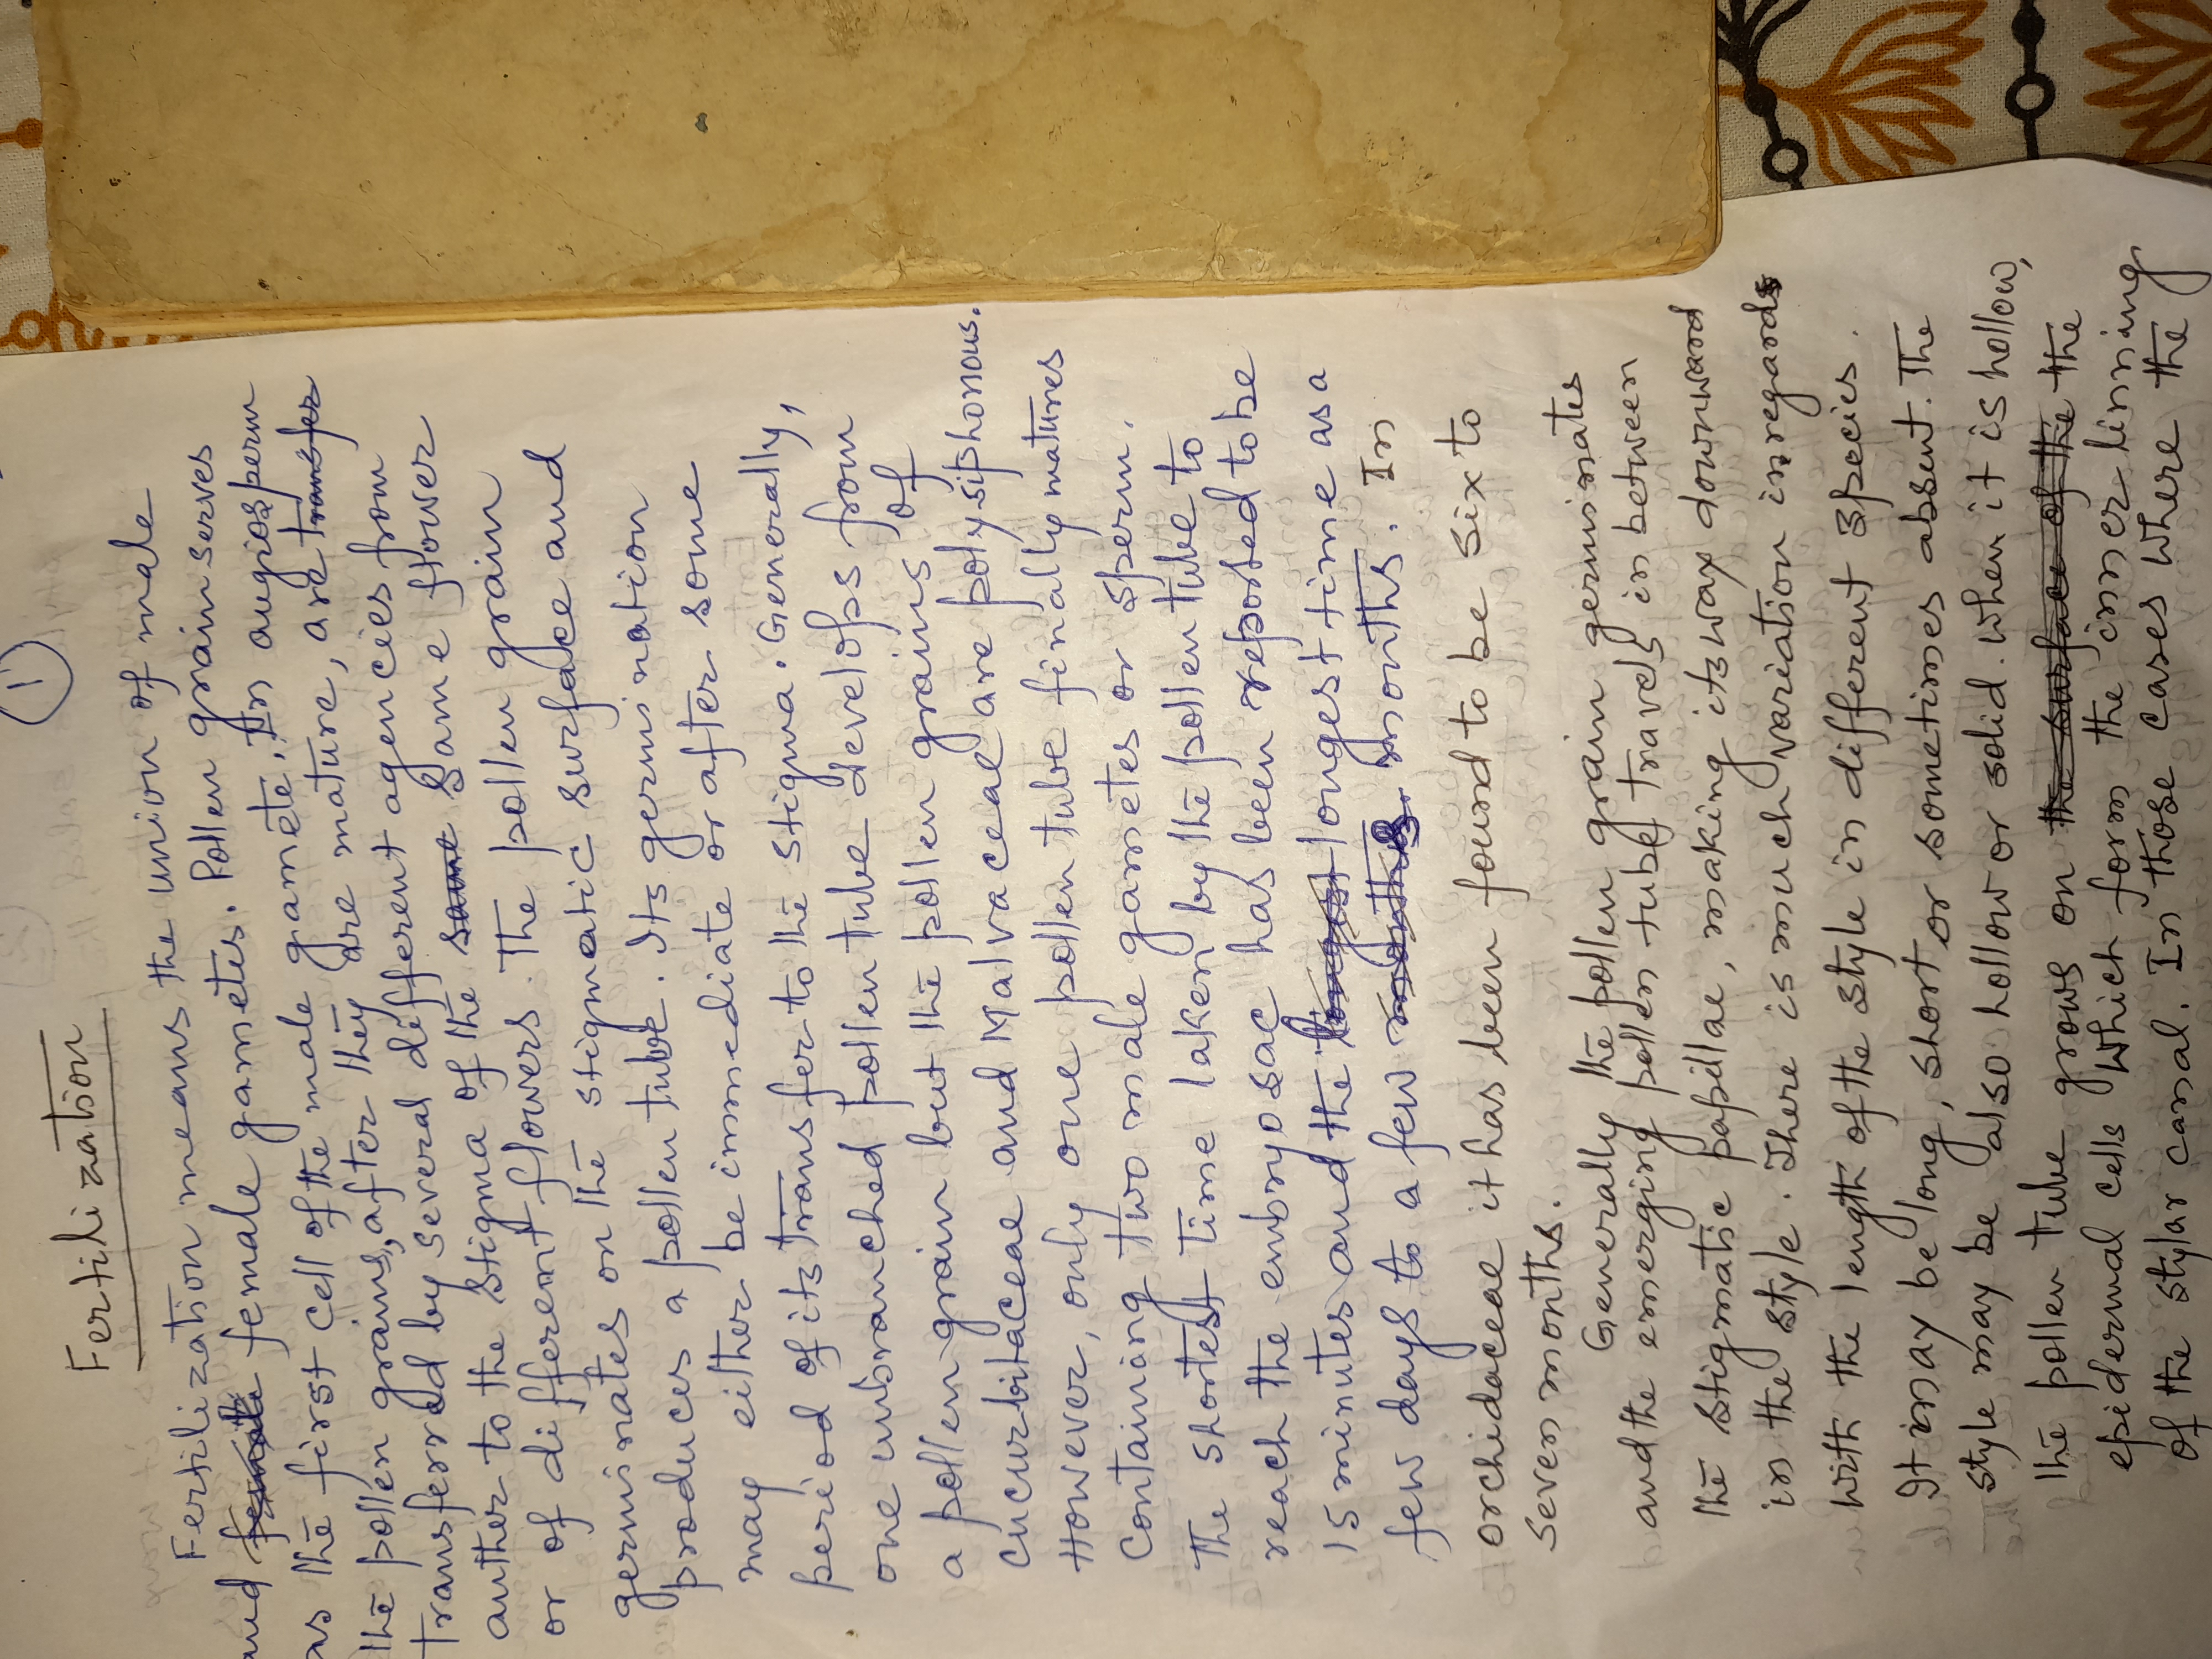 1
Fertilization
Fertilization means the union of male
and female female gametes. Pollen grain serves
as the first cell of the male gamete. In angiosperm
the pollen grains, after they are mature, are transfer
transferred by several different agencies from
anther to the stigma of the same same flower
or of different flowers. The pollen grain
germinates on the stigmatic surface and
produces a pollen tube. Its germination
may either be immediate or after some
period of its transfer to the stigma. Generally,
one unbranched pollen tube develops from
a pollen grain but the pollen grains of
cucurbitaceae and Malvaceae are polysiphonous.
However, only one pollen tube finally matures
containing two male gametes or sperm.
The shortest time taken by the pollen tube to
reach the embryosac has been reported to be
15 minutes and the longest longest time as a
few days to a few months months. In
orchidaceae it has been found to be six to
seven months.
Generally the pollen grain germinates
and the emerging pollen tube travels in between
the stigmatic papillae, making its way downward
in the style. There is much variation in regards
with the length of the style in different species.
It may be long, short or sometimes absent. The
style may be also hollow or solid. when it is hollow,
the pollen tube grows on the surface of the the
epidermal cells which form the inner linning
of the stylar canal. In those cases where the